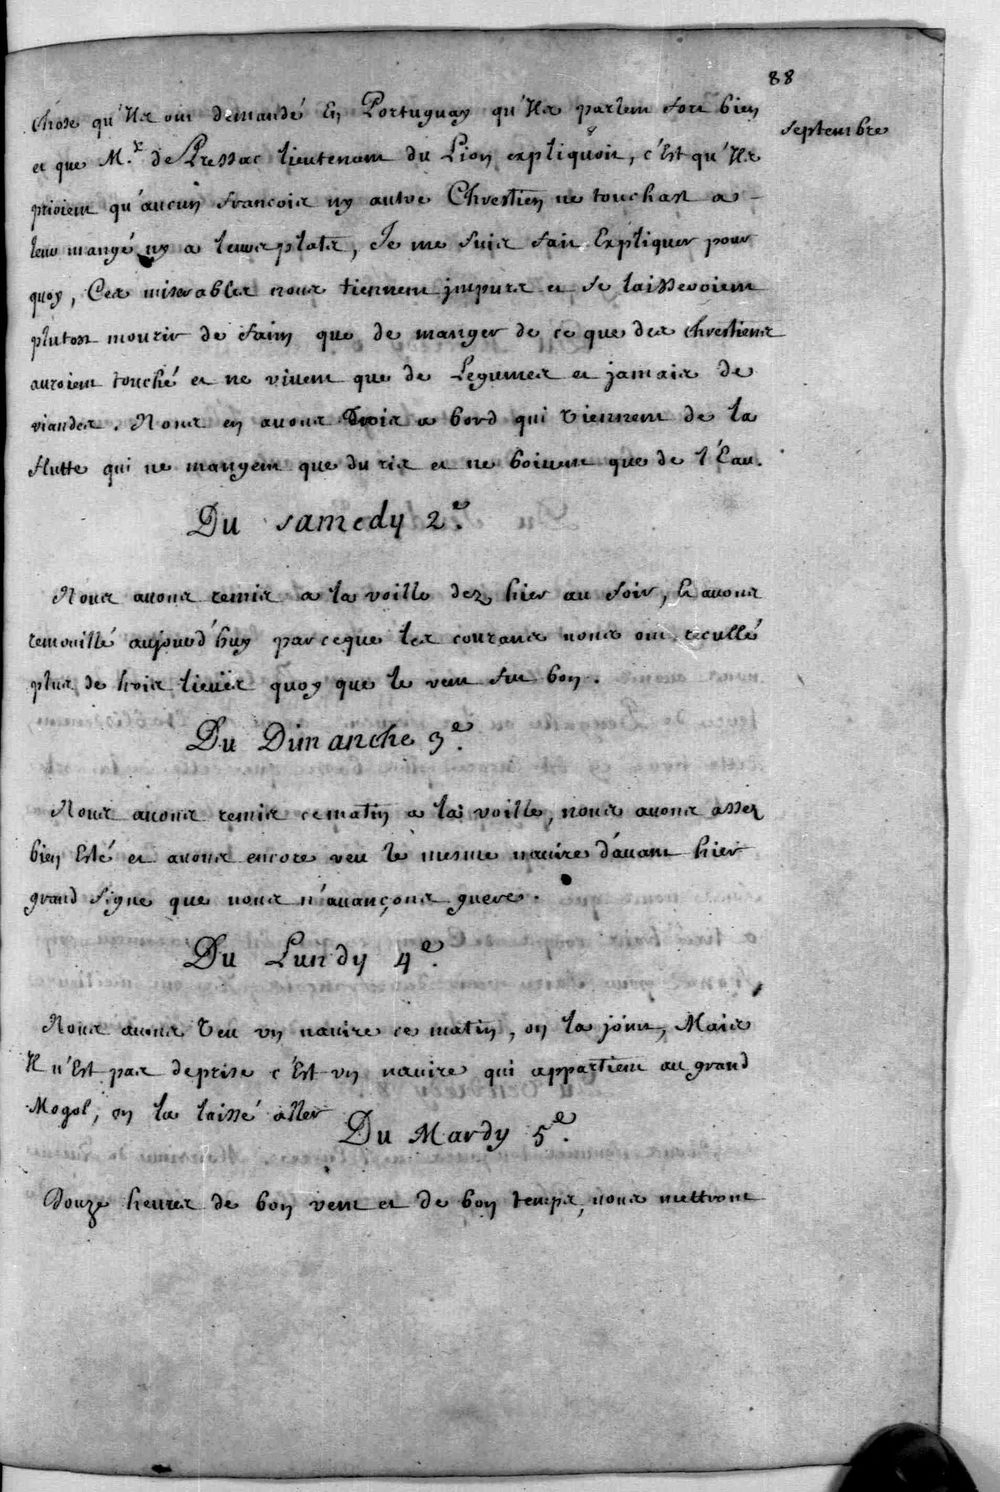 88
septembre
chose qu'Ils ont demandé En Portuguay qu'Ils parlent fort bien
et que M.r de Pressac lieutenant du Lion expliquoit, c'Est qu'Ils
prioient qu'aucun francois ny autre Chrestien ne touchast a
leur mangé ny a leurs plats, Je me suis fait Expliquer pour
quoy, Ces miserables nous tiennent jmpurs et se laisseroient
plutost mourir de faim que de manger de ce que des chrestiens
auroient touché et ne vivent que de Legumes et jamais de
viandes. Nous en avons trois a bord qui viennent de la
flutte qui ne mangent que du ris et ne boivent que de l'Eau.
Du samedy 2e.
Nous avons remis a la voille dez hier au soir, Et avons
remouillé aujourd'huy parceque les courans nous ont recullé
plus de trois lieües quoy que le vent fut bon.
Du Dimanche 3e.
Nous avons remis ce matin a la voille, nous avons assez
bien Esté et avons encore veu le mesme navire d'avant hier
grand signe que nous n'avançons guere.
Du Lundy 4e.
Nous avons veu vn navire ce matin, on la joint, Mais
Il n'Est pas deprise c'Est vn navire qui appartient au grand
Mogol, on la laissé aller
Du Mardy 5e.
Douze heures de bon vent et de bon temps, nous mettront